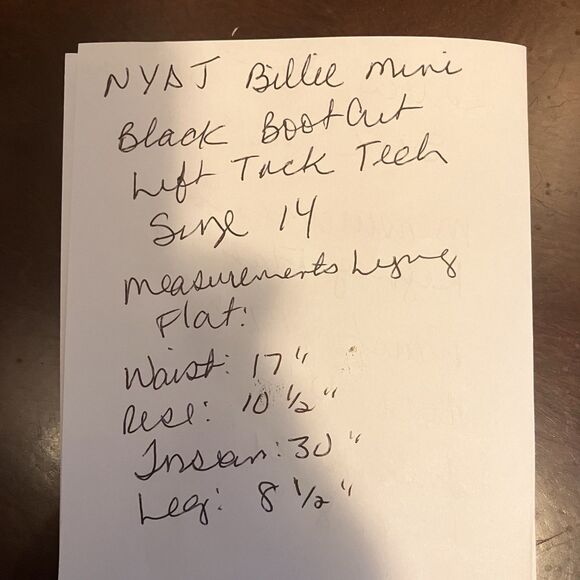 NYDJ Billie Mini
Black BootCut
Lift Tuck Tech
Size 14
Measurements Lying
Flat:
Waist: 17"
Rise: 10 1/2"
Inseam: 30"
Leg: 8 1/2"